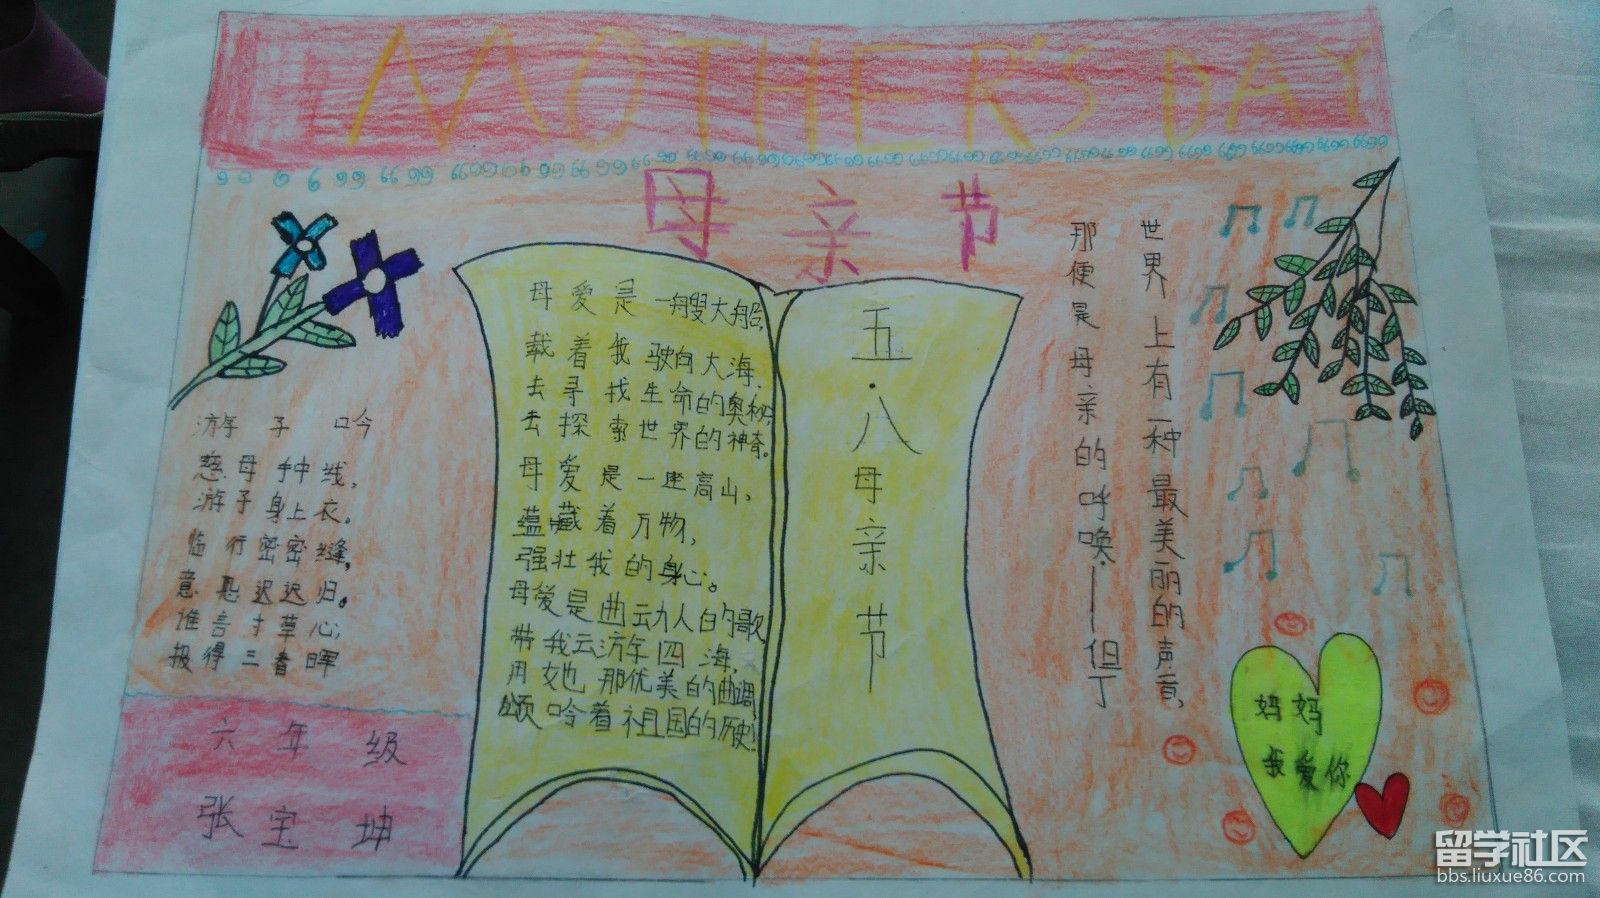 MOTHER'S DAY
母亲节
游子吟
慈母手中线,
游子身上衣。
临行密密缝,
意恐迟迟归。
谁言寸草心;
报得三春晖
六年级
张宝坤
母爱是一艘大船,
载着我驶向大海,
去寻找生命的奥秘,
去探索世界的神奇。
母爱是一座高山,
蕴藏着万物,
强壮我的身心。
母爱是曲动人的歌
带我去游年四海,
用她那优美的曲调,
颂吟着祖国的历史!
五·八母亲节
世界上有一种最美丽的声音,
那便是母亲的呼唤·——但丁
妈妈
我爱你
留学社区
bbs.liuxue86.com